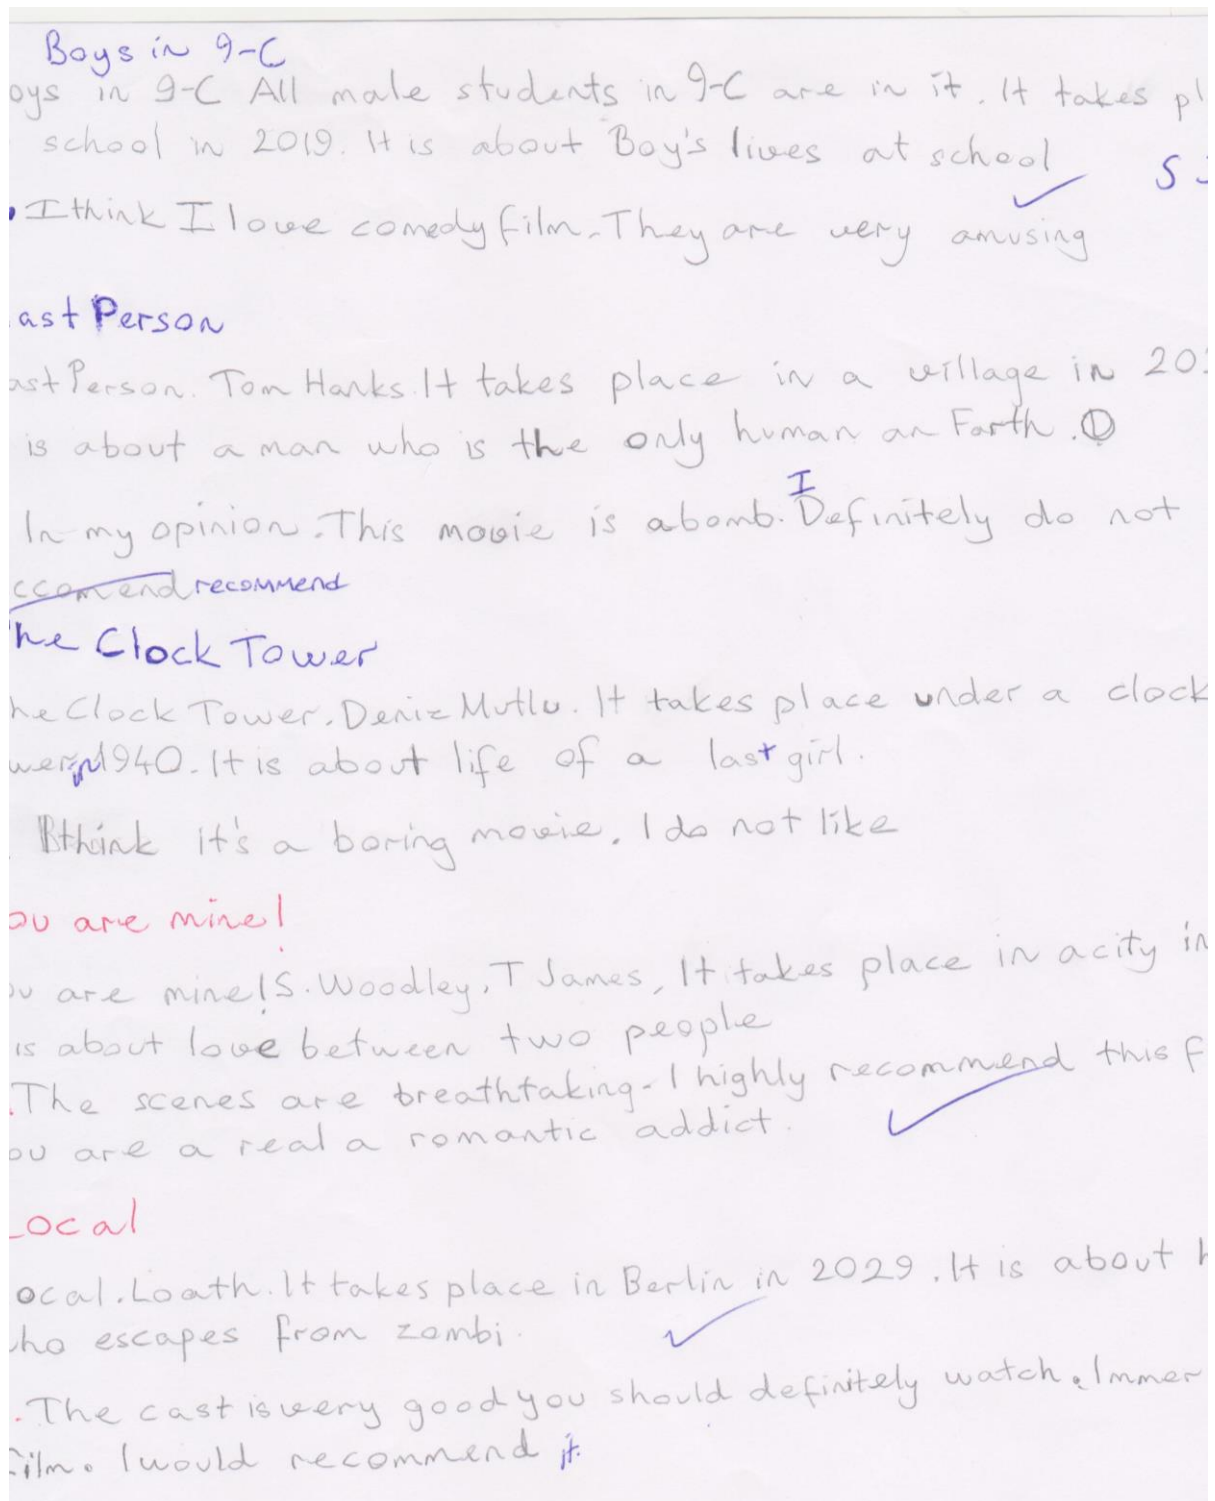 Boys in 9-C
oys in 9-C All male students in 9-C are in it. It takes pl
school in 2019. It is about Boy's lives at school
S
I think I love comedy film. They are very amusing
ast Person
ast Person. Tom Hanks. It takes place in a village in 20
is about a man who is the only human an Earth.
I
In my opinion. This movie is a bomb. Definitely do not
ccomend recommend
he Clock Tower
he Clock Tower. Deniz Mutlu. It takes place under a clock
wer in 1940. It is about life of a last girl.
think it's a boring movie. I do not like
ou are mine!
ou are mine! S. Woodley, T James, It takes place in a city in
is about love between two people
.The scenes are breathtaking. I highly recommend this f
ou are a real a romantic addict.
Local
ocal. Loath. It takes place in Berlin in 2029. It is about h
ho escapes from zombi.
.The cast is very good you should definitely watch. Immer
film. I would recommend it.